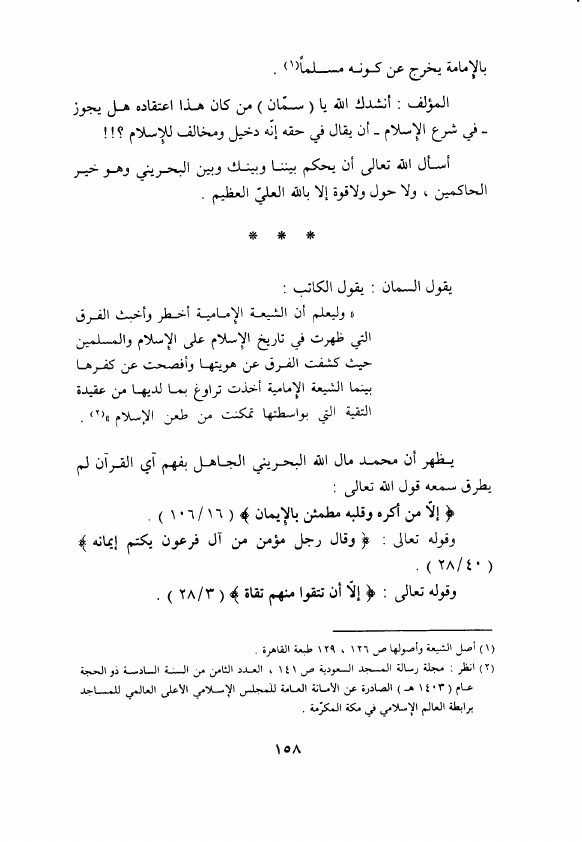 بالإمامة يخرج عن كونه مسلماً(١) .
المؤلف : أنشدك الله يا ( سمّان ) من كان هذا اعتقاده هل يجوز
ـ في شرع الإسلام ـ أن يقال في حقه إنّه دخيل ومخالف للإسلام ؟!!
أسأل الله تعالى أن يحكم بيننا وبينك وبين البحريني وهو خير
الحاكمين ، ولا حول ولاقوة إلا بالله العليّ العظيم .
* * *
يقول السمان : يقول الكاتب :
« وليعلم أن الشيعة الإمامية أخطر وأخبث الفرق
التي ظهرت في تاريخ الإسلام على الإسلام والمسلمين
حيث كشفت الفرق عن هويتها وأفصحت عن كفرها
بينما الشيعة الإمامية أخذت تراوغ بما لديها من عقيدة
التقية التي بواسطتها تمكنت من طعن الإسلام »(٢) .
يظهر أن محمد مال الله البحريني الجاهل بفهم آي القرآن لم
يطرق سمعه قول الله تعالى :
﴿ إلاّ من أكره وقلبه مطمئن بالإيمان ﴾ ( ١٠٦/١٦ ) .
وقوله تعالى : ﴿ وقال رجل مؤمن من آل فرعون يكتم إيمانه ﴾
( ٢٨/٤٠ ) .
وقوله تعالى : ﴿ إلاّ أن تتقوا منهم تقاة ﴾ ( ٢٨/٣ ) .
(١) أصل الشيعة وأصولها ص ١٢٦ ، ١٢٩ طبعة القاهرة .
(٢) انظر : مجلة رسالة المسجد السعودية ص ١٤١ ، العدد الثامن من السنة السادسة ذو الحجة
عام ( ١٤٠٣ هـ ) الصادرة عن الأمانة العامة للمجلس الإسلامي الأعلى العالمي للمساجد
برابطة العالم الإسلامي في مكة المكرّمة .
١٥٨